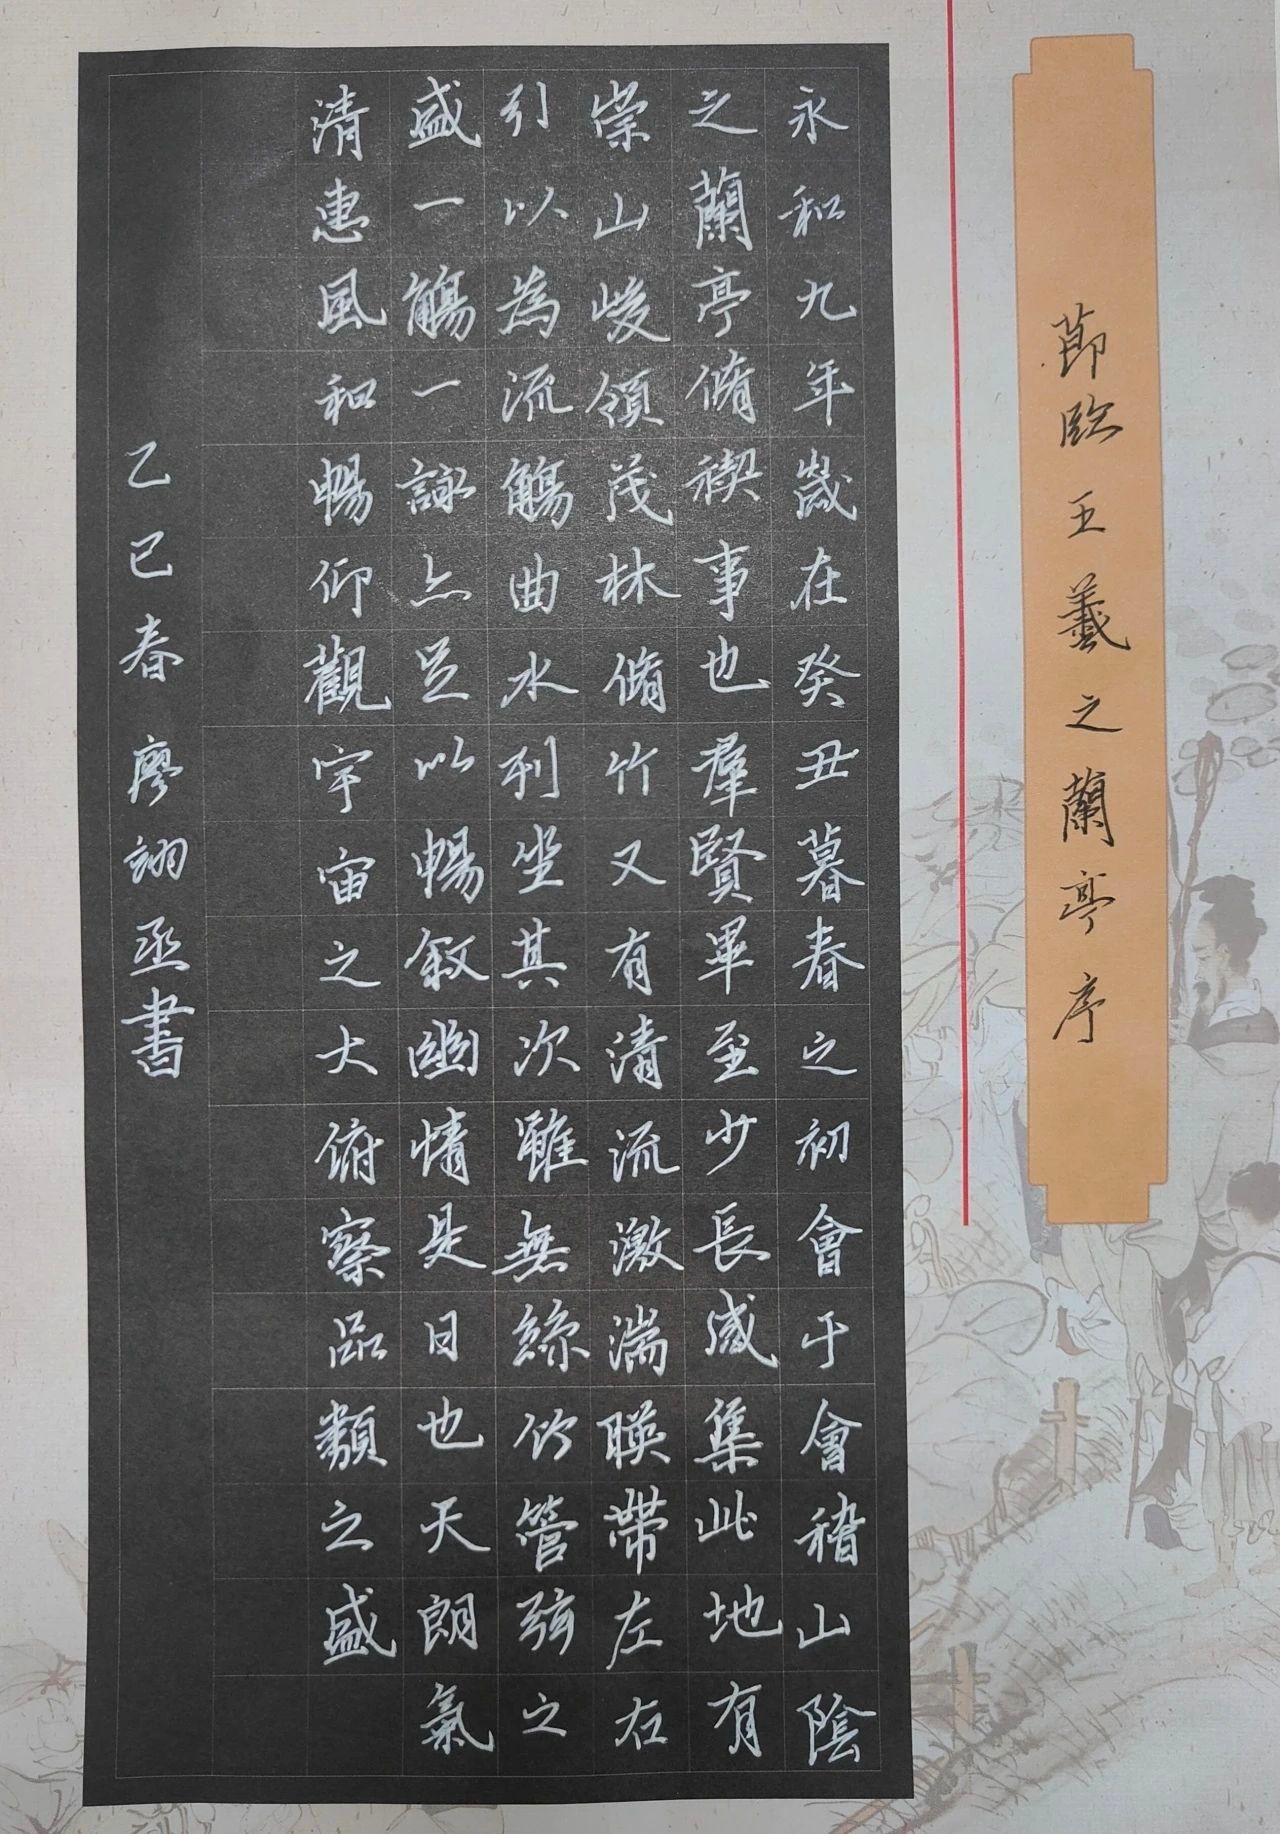 節臨王羲之蘭亭序
永和九年歲在癸丑暮春之初會于會稽山陰
之蘭亭脩禊事也羣賢畢至少長咸集此地有
崇山峻領茂林脩竹又有清流激湍暎帶左右
引以為流觴曲水列坐其次雖無絲竹管弦之
盛一觴一詠亦足以暢叙幽情是日也天朗氣
清惠風和暢仰觀宇宙之大俯察品類之盛
乙巳春廖翊丞書